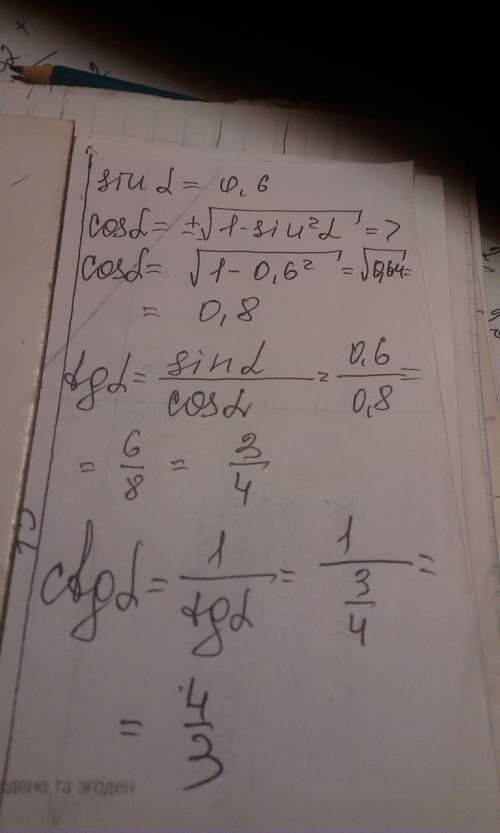 sin α = 0,6
cos α = ±√(1-sin²α) =>
cos α = √(1-0,6²) = √0,64 =
= 0,8
tg α = sin α / cos α = 0,6 / 0,8 =
= 6/8 = 3/4
ctg α = 1 / tg α = 1 / (3/4) =
= 4/3
едене та згоден